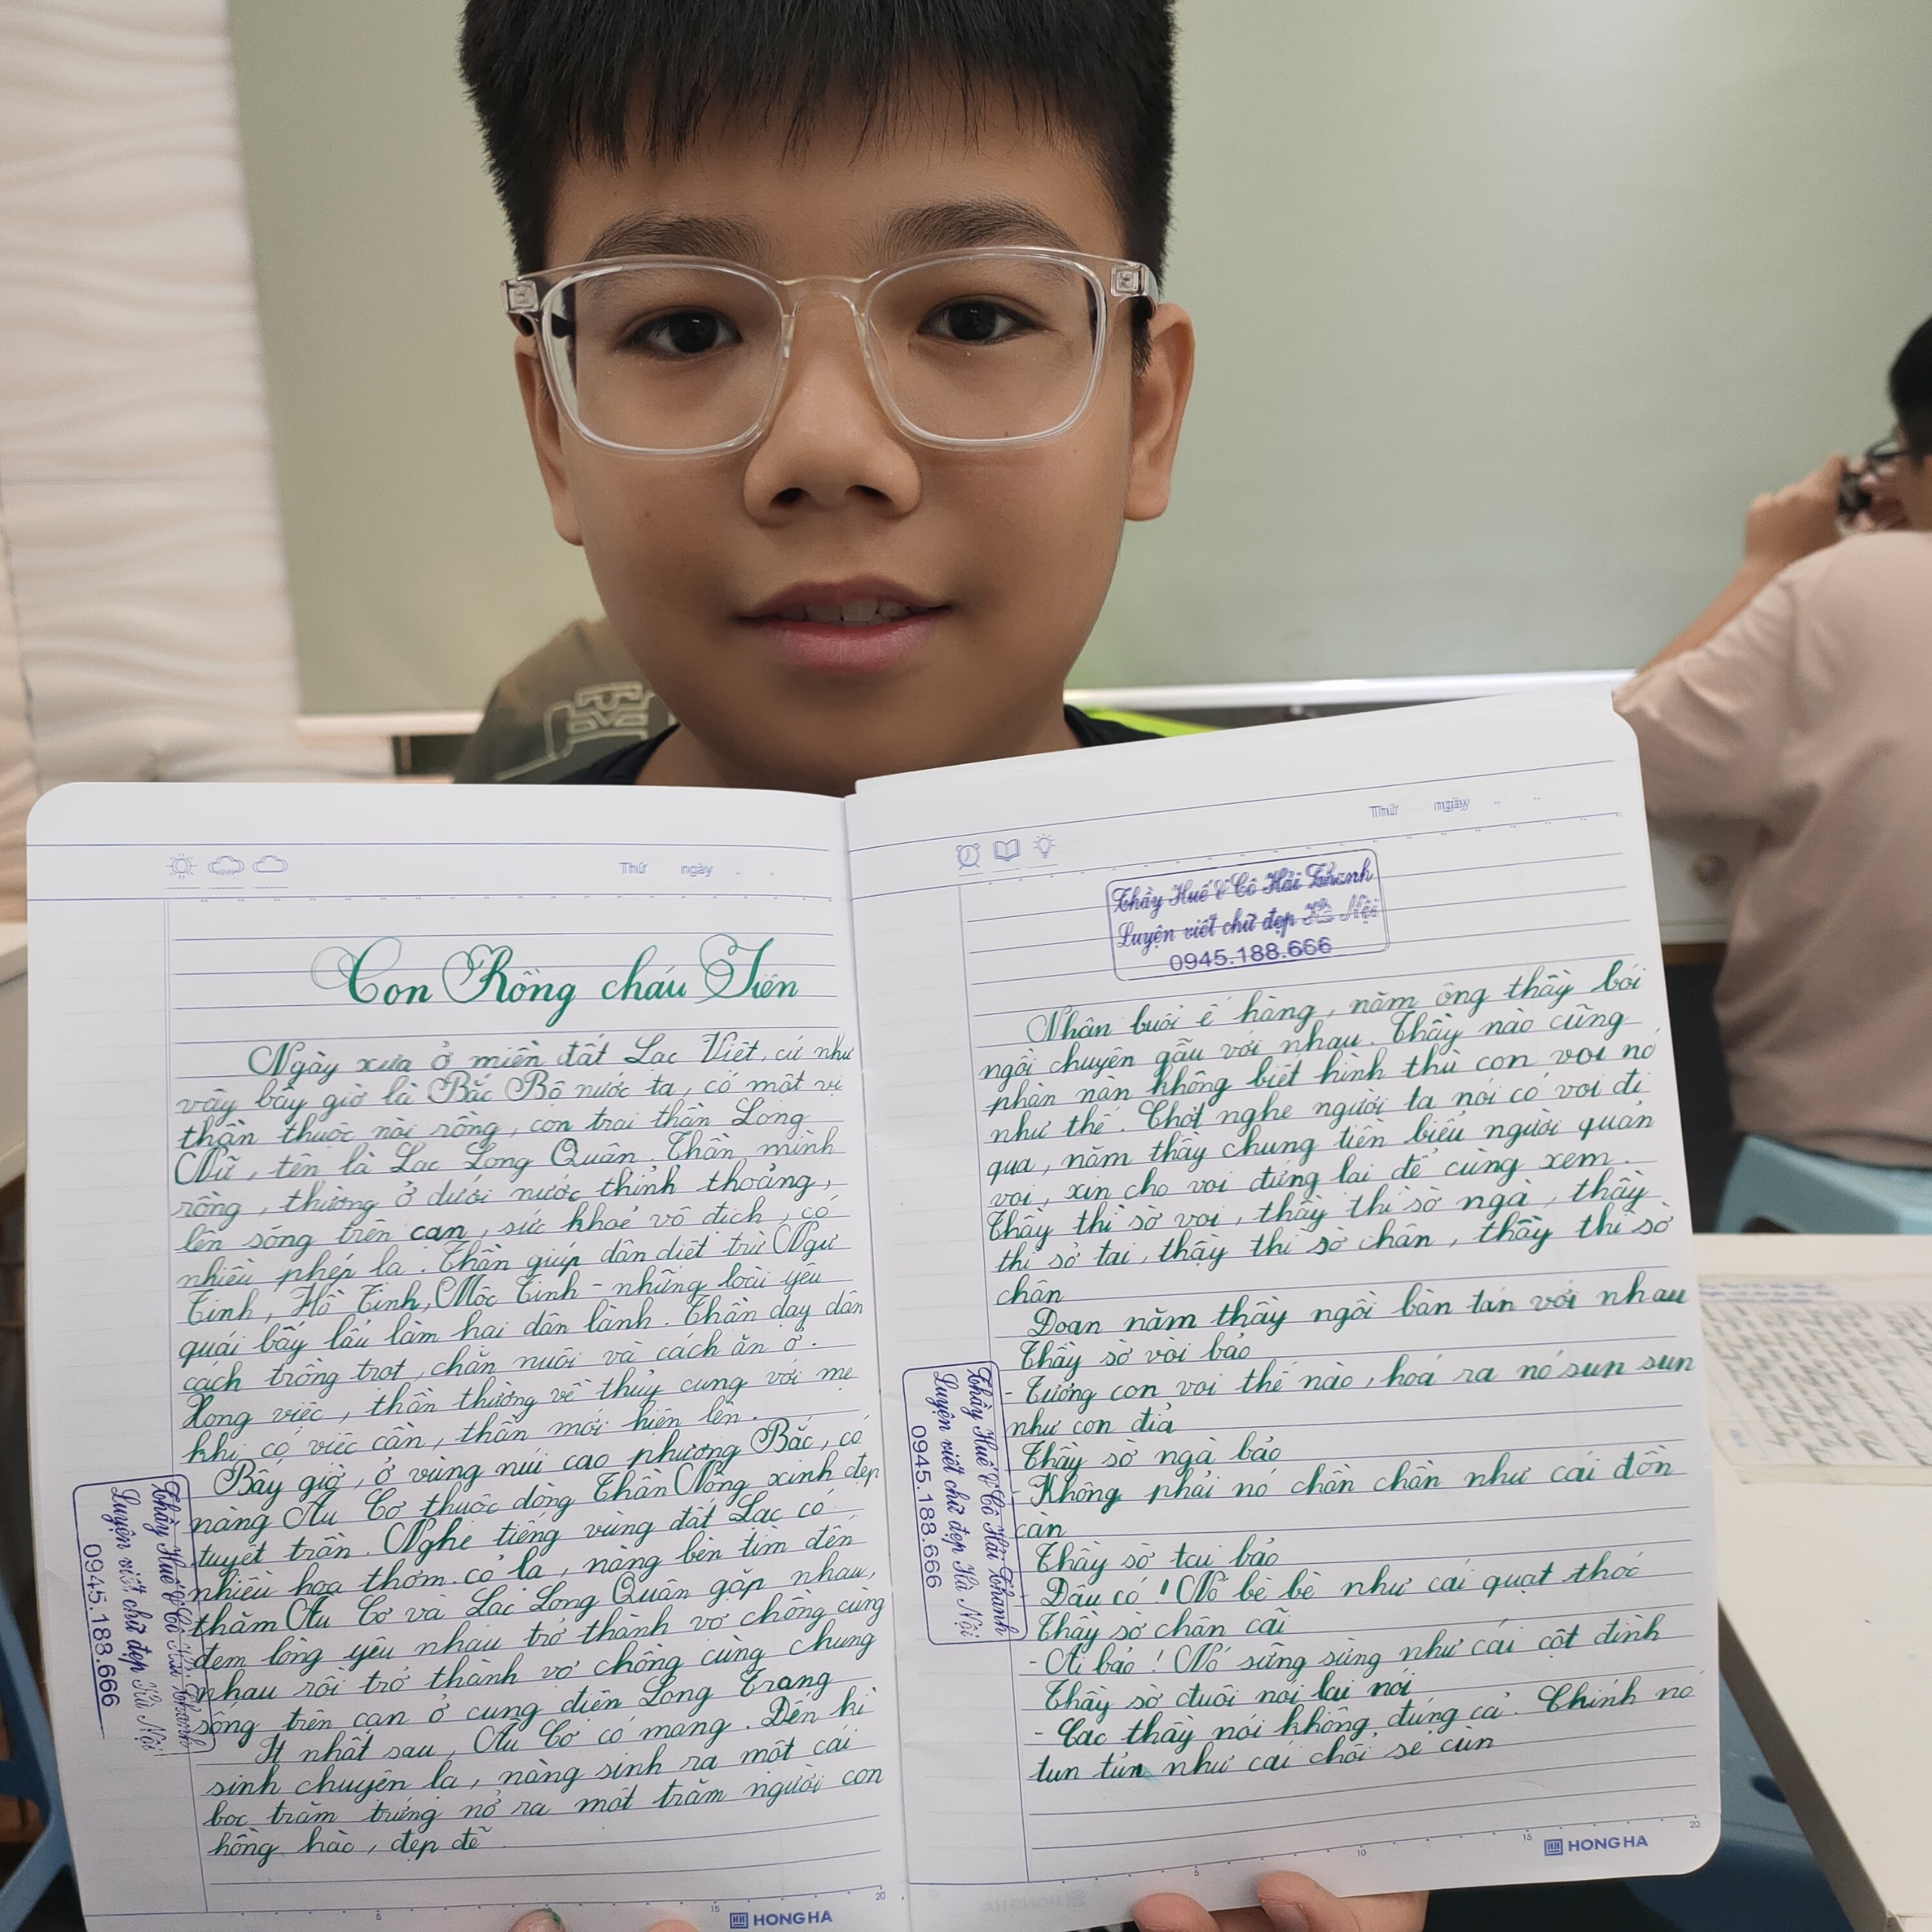 Thứ ngày
Con Rồng cháu Tiên
Ngày xưa ở miền đất Lạc Việt, cứ như
vây bây giờ là Bắc Bộ nước ta, có một vị
thần thuộc nòi rồng, con trai thần Long
Nữ, tên là Lạc Long Quân. Thần mình
rồng, thường ở dưới nước thỉnh thoảng,
lên sống trên cạn, sức khoẻ vô địch, có
nhiều phép lạ. Thần giúp dân diệt trừ Ngư
Tinh, Hồ Tinh, Mộc Tinh - những loài yêu
quái bấy lâu làm hại dân lành. Thần dạy dân
cách trồng trọt, chăn nuôi và cách ăn ở.
Xong việc, thần thường về thuỷ cung với mẹ
khi có việc cần, thần mới hiện lên.
Bấy giờ, ở vùng núi cao phương Bắc, có
nàng Âu Cơ thuộc dòng Thần Nông xinh đẹp
tuyệt trần. Nghe tiếng vùng đất Lạc có
nhiều hoa thơm cỏ lạ, nàng bèn tìm đến
thăm Âu Cơ và Lạc Long Quân gặp nhau,
đem lòng yêu nhau trở thành vợ chồng cùng
nhau rồi trở thành vợ chồng cùng chung
sống trên cạn ở cung điện Long Trang
Ít nhất sau, Âu Cơ có mang. Đến kì
sinh chuyện lạ, nàng sinh ra một cái
bọc trăm trứng nở ra một trăm người con
hồng hào, đẹp đẽ
Thầy Huế & Cô Hải Thanh
Luyện viết chữ đẹp Hà Nội
0945.188.666
HONG HA
Thứ ngày
Thầy Huế & Cô Hải Thanh
Luyện viết chữ đẹp Hà Nội
0945.188.666
Nhân buổi ế hàng, năm ông thầy bói
ngồi chuyện gẫu với nhau. Thầy nào cũng
phàn nàn không biết hình thù con voi nó
như thế. Chợt nghe người ta nói có voi đi
qua, năm thầy chung tiền biếu người quản
voi, xin cho voi đứng lại để cùng xem.
Thầy thì sờ voi, thầy thì sờ ngà, thầy
thì sờ tai, thầy thì sờ chân, thầy thì sờ
chân
Đoạn năm thầy ngồi bàn tán với nhau
Thầy sờ vòi bảo
- Tưởng con voi thế nào, hoá ra nó sun sun
như con đỉa
Thầy sờ ngà bảo
Không phải nó chần chẫn như cái đòn
càn
Thầy sờ tai bảo
- Đâu có! Nó bè bè như cái quạt thóc
Thầy sờ chân cãi
- Ai bảo! Nó sừng sững như cái cột đình
Thầy sờ đuôi nói lại nói
- Các thầy nói không đúng cả. Chính nó
tun tủn như cái chổi sể cùn
Thầy Huế & Cô Hải Thanh
Luyện viết chữ đẹp Hà Nội
0945.188.666
HONG HA